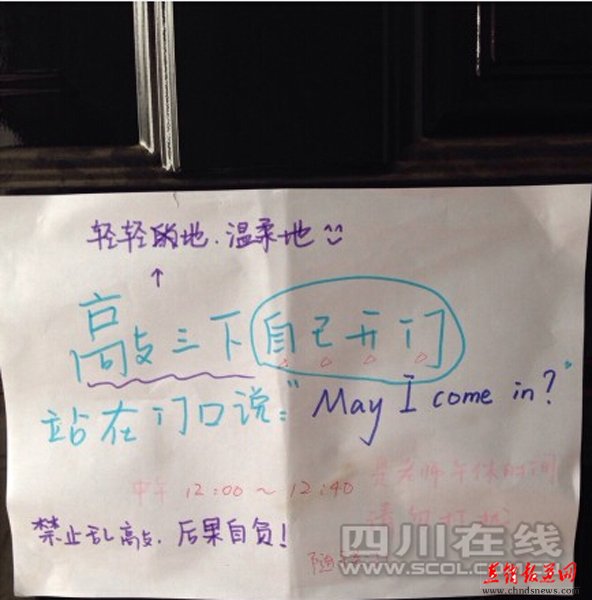 轻轻地.温柔地
↑
敲三下自己开门
站在门口说:"May I come in?"
中午 12:00～12:40 是老师午休时间
请勿打扰
禁止乱敲.后果自负!
四川在线
WWW.SCOL.COM.CN
www.chndsnews.com